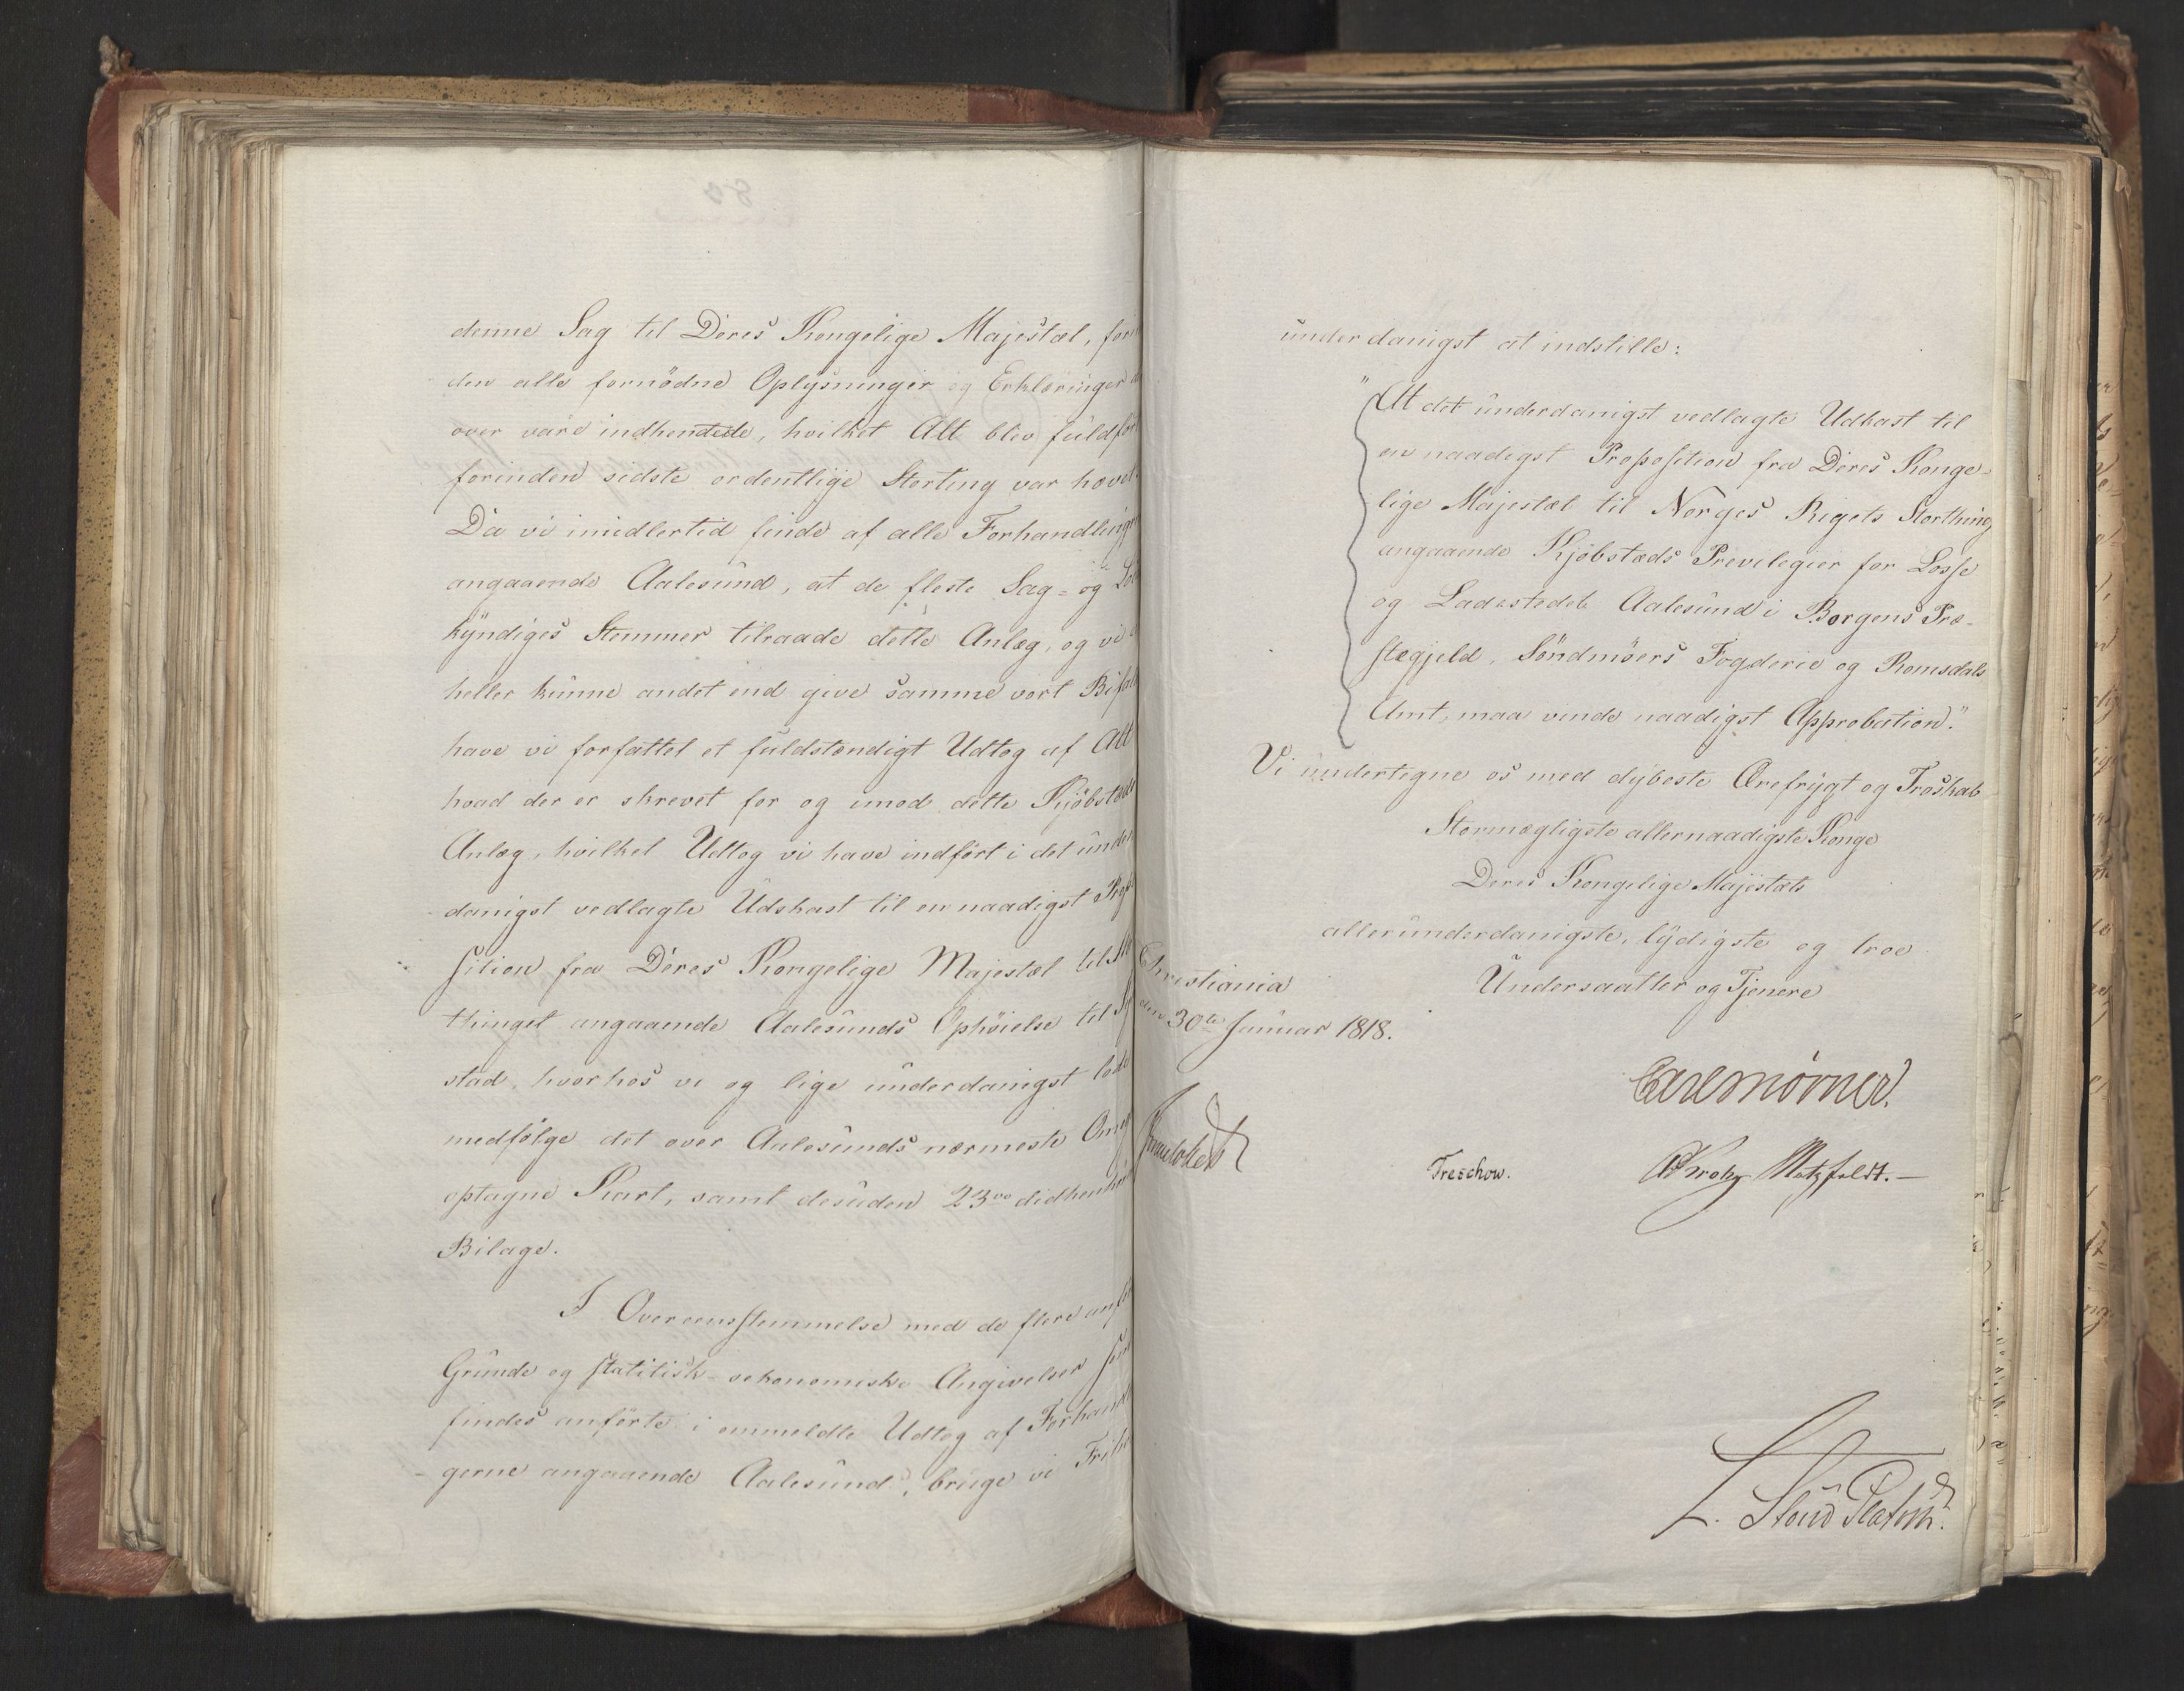 denne Sag til Deres Kongelige Majestæt, for
den alle fornödne Oplysninger og Erklæringer
over vare indhentede, hvilket Alt blev fuldför
forinden sidste ordentlige Storting var hævet.
Da vi imidlertid finde af alle Forhandlinger
angaaende Aalesund, at de fleste Sag- og
kyndiges Stemmer tilraade dette Anlæg, og vi
heller kunne andet end give samme vort Bifald
have vi forfattet et fuldstændigt Udtog af Alt
hvad der er skrevet for og imod dette Kjöbstæds
Anlæg, hvilket Udtog vi have indfört i det under
danigst vedlagte Udskast til en naadigst
sition fra Deres Kongelige Majestæt til
thinget angaaende Aalesunds Ophöielse til
stad, hvorhos vi og lige underdanigst lade
medfölge det over Aalesunds nærmeste
optagne Kart, samt desuden 23de didhenhör
Bilage.
I Overeensstemmelse med de flere
Grunde og statitisk-oekonomiske Angivelser
findes anförte i ommeldte Udtog af Forhand
gerne angaaende Aalesund, bruge vi
underdanigst at indstille:
"At det underdanigst vedlagte Udkast til
en naadigst Proposition fra Deres Konge-
lige Majestæt til Norges Riges Storthing
angaaende Kjöbstæds Previlegier for Losse
og Ladestedet Aalesund i Borgens Præ-
stegjeld, Söndmöers Fogderie og Romsdals
Amt, maa vinde naadigst Approbation."
Vi undertegne os med dybeste Ærefrygt og Troskab
Stormægtigste allernaadigste Konge
Deres Kongelige Majestæts
allerunderdanigste, lydigste og troe
Undersaatter og Tjenere
Christiania
den 30te Januar 1818.
Carl Mörner.
Treschow.
Krohg
Motzfeldt.
L. Stoud Platou